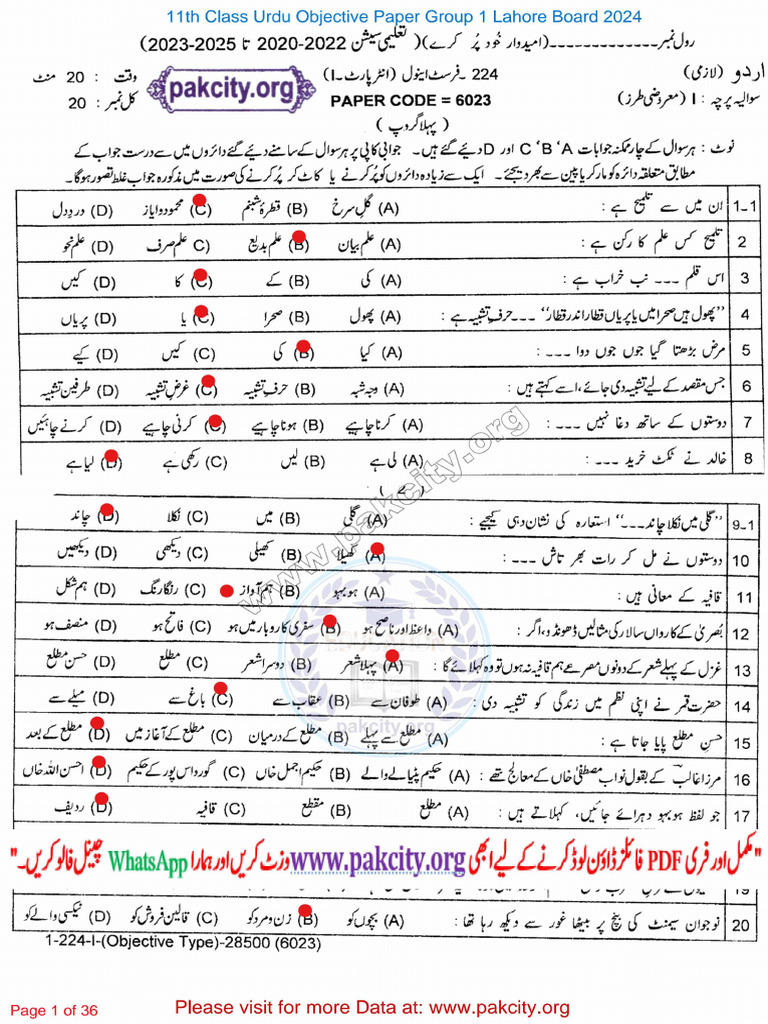 11th Class Urdu Objective Paper Group 1 Lahore Board 2024
رول نمبر ------------(امیدوار خود پُر کرے)( تعلیمی سیشن 2022-2020 تا 2025-2023)
اردو (لازمی) 224 - فرسٹ اینول (انٹر پارٹ -I) وقت : 20 منٹ
سوالیہ پرچہ : I (معروضی طرز) PAPER CODE = 6023 کل نمبر : 20
pakcity.org
( پہلا گروپ )
نوٹ : ہر سوال کے چار ممکنہ جوابات A ‘ B ‘ C اور D دیئے گئے ہیں ۔ جوابی کاپی پر ہر سوال کے سامنے دیئے گئے دائروں میں سے درست جواب کے
مطابق متعلقہ دائرہ کو مارکر یا پین سے بھر دیجئے ۔ ایک سے زیادہ دائروں کو پُر کرنے یا کاٹ کر پُر کرنے کی صورت میں مذکورہ جواب غلط تصور ہوگا۔
1-1 ان میں سے تلمیح ہے : (A) گلِ سرخ (B) قطرۂ شبنم (C) محمود و ایاز (D) دردِ دل
2 تلمیح کس علم کا رکن ہے : (A) علم بیان (B) علم بدیع (C علم صرف (D) علم نحو
3 اس قلم --- نب خراب ہے : (A) کی (B) کے (C) کا (D) کیں
4 ’’پھول ہیں صحرا میں یا پریاں قطار اندر قطار‘‘ --- حرفِ تشبیہ ہے : (A) پھول (B) صحرا (C) یا (D) پریاں
5 مرض بڑھتا گیا جوں جوں دوا --- : (A) کیا (B) کی (C) کیں (D) کیے
6 جس مقصد کے لیے تشبیہ دی جائے ، اسے کہتے ہیں : (A) وجہ شبہ (B) حرفِ تشبیہ (C) غرضِ تشبیہ (D) طرفینِ تشبیہ
7 دوستوں کے ساتھ دغا نہیں --- : (A) کرنا چاہیے (B) ہونا چاہیے (C) کرنی چاہیے (D) کرنے چاہئیں
8 خالد نے ٹکٹ خرید --- : (A) لی ہے (B) لیں (C) رکھی ہے (D) لیا ہے
9-1 ’’گلی میں نکلا چاند---‘‘ استعارہ کی نشان دہی کیجیے : (A) گلی (B) میں (C) نکلا (D) چاند
10 دوستوں نے مل کر رات بھر تاش --- : (A) کھیلا (B) کھیلی (C) دیکھی (D) دیکھیں
11 قافیہ کے معانی ہیں : (A) ہوبہو (B) ہم آواز (C) رنگارنگ (D) ہم شکل
12 بُصریٰ کے کارواں سالار کی مثالیں ڈھونڈو ، اگر : (A) واعظ اور ناصح ہو (B) سفری کاروبار میں ہو (C) فاتح ہو (D) منصف ہو
13 غزل کے پہلے شعر کے دونوں مصرعے ہم قافیہ نہ ہوں تو وہ کہلائے گا : (A) پہلا شعر (B) دوسرا شعر (C) مطلع (D) حسنِ مطلع
14 حضرت قمر نے اپنی نظم میں زندگی کو تشبیہ دی : (A) طوفان سے (B) عقاب سے (C) باغ سے (D) میلے سے
15 حسنِ مطلع پایا جاتا ہے : (A) مطلع سے پہلے (B) مطلع کے درمیان (C) مطلع کے آغاز میں (D) مطلع کے بعد
16 مرزا غالب کے بقول نواب مصطفیٰ خاں کے معالج تھے : (A) حکیم پٹیالے والے (B) حکیم اجمل خاں (C) گورداس پور کے حکیم (D) احسن اللہ خاں
17 جو لفظ ہوبہو دہرائے جائیں ، کہلاتے ہیں : (A) مطلع (B) مقطع (C) قافیہ (D) ردیف
"مکمل اور فری PDF فائلز ڈاؤن لوڈ کرنے کے لیے ابھی www.pakcity.org وزٹ کریں اور ہمارا WhatsApp چینل فالو کریں۔"
19
20 نوجوان سیمنٹ کی بنچ پر بیٹھا غور سے دیکھ رہا تھا : (A) بچوں کو (B) زن و مرد کو (C) قالین فروش کو (D) ٹیکسی والے کو
1-224-I-(Objective Type)-28500 (6023)
www.pakcity.org
pakcity.org
Page 1 of 36
Please visit for more Data at: www.pakcity.org